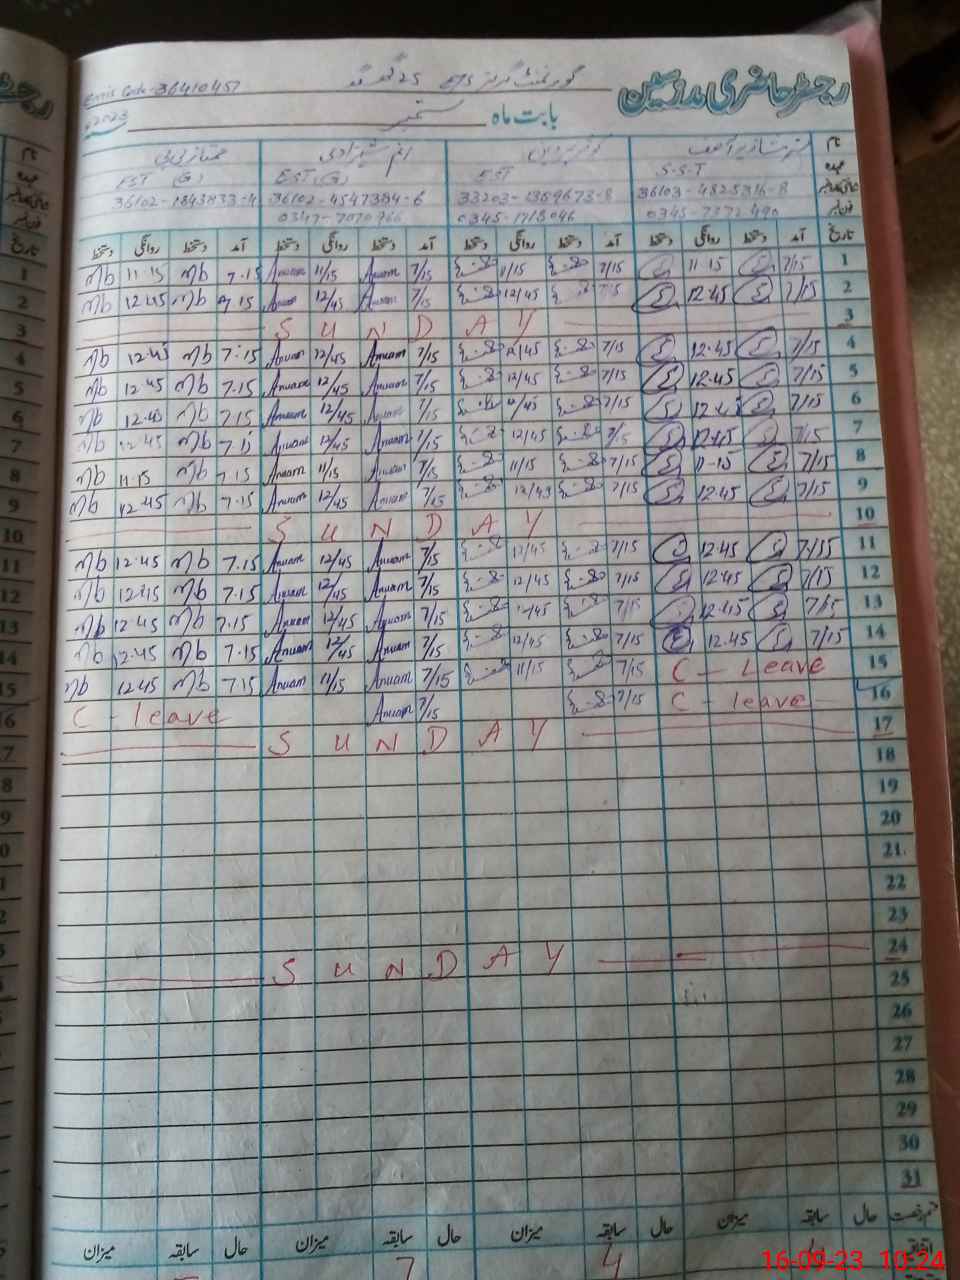 رجسٹر حاضری مدرسین
گورنمنٹ گرلز E/S 25 گھ گھ
Emis Code-36410457
بابت ماہ ستمبر 2023
نام
ممتاز بی بی انعم شہزادی کوثر پروین
عہدہ S.S.T EST EST (G) EST (G)
36103-4825316-8 33203-1359673-8 36102-4547384-6 36102-1843833-4
فون نمبر 0345-7372490 0345-1715046 0347-7070766
تاریخ آمد دستخط روانگی دستخط آمد دستخط روانگی دستخط آمد دستخط روانگی دستخط آمد دستخط روانگی دستخط
1 7/15 11-15 7/15 11/15 7/15 Anuam 11/15 Anuam 7.15 mb 11.15 mb
2 7/15 12.45 7/15 12/45 7/15 Anuam 12/45 Anuam 7.15 mb 12.45 mb
3 S U N D A Y
4 7/15 12.45 7/15 12/45 7/15 Anuam 12/45 Anuam 7.15 mb 12.45 mb
5 7/15 12.45 7/15 12/45 7/15 Anuam 12/45 Anuam 7.15 mb 12.45 mb
6 7/15 12.45 7/15 12/45 7/15 Anuam 12/45 Anuam 7.15 mb 12.45 mb
7 7/15 12.45 7/15 12/45 7/15 Anuam 12/45 Anuam 7.15 mb 12.45 mb
8 7/15 11-15 7/15 11/15 7/15 Anuam 11/15 Anuam 7.15 mb 11.15 mb
9 7/15 12.45 7/15 12/45 7/15 Anuam 12/45 Anuam 7.15 mb 12.45 mb
10 S U N D A Y
11 7/15 12.45 7/15 12/45 7/15 Anuam 12/45 Anuam 7.15 mb 12.45 mb
12 7/15 12.45 7/15 12/45 7/15 Anuam 12/45 Anuam 7.15 mb 12.45 mb
13 7/15 12.45 7/15 12/45 7/15 Anuam 12/45 Anuam 7.15 mb 12.45 mb
14 7/15 12.45 7/15 12/45 7/15 Anuam 12/45 Anuam 7.15 mb 12.45 mb
15 C - Leave 7/15 11/15 7/15 Anuam 11/15 Anuam 7.15 mb 12.45 mb
16 C - leave 7/15 7/15 Anuam C - leave
17 S U N D A Y
18
19
20
21
22
23
24 S U N D A Y
25
26
27
28
29
30
31
قسم رخصت حال سابقہ میزان حال سابقہ میزان حال سابقہ میزان حال سابقہ میزان
اتفاقیہ 4 7
16-09-23 10:24